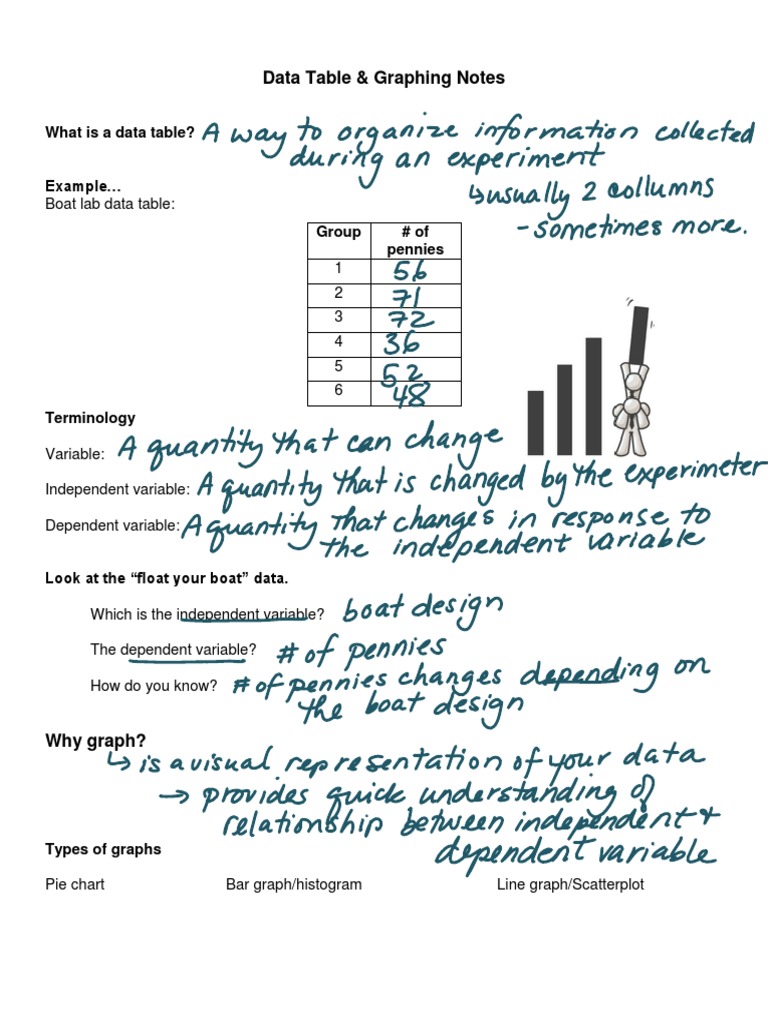 Data Table & Graphing Notes
What is a data table? A way to organize information collected
during an experiment
Example...
↳usually 2 collumns
Boat lab data table:
- sometimes more.
Group # of pennies
1 56
2 71
3 72
4 36
5 52
6 48
Terminology
Variable: A quantity that can change
Independent variable: A quantity that is changed by the experimeter
Dependent variable: A quantity that changes in response to
the independent variable
Look at the “float your boat” data.
Which is the independent variable? boat design
The dependent variable? # of pennies
How do you know? # of pennies changes depending on
the boat design
Why graph?
↳ is a visual representation of your data
→ provides quick understanding of
relationship between independent +
dependent variable
Types of graphs
Pie chart Bar graph/histogram Line graph/Scatterplot